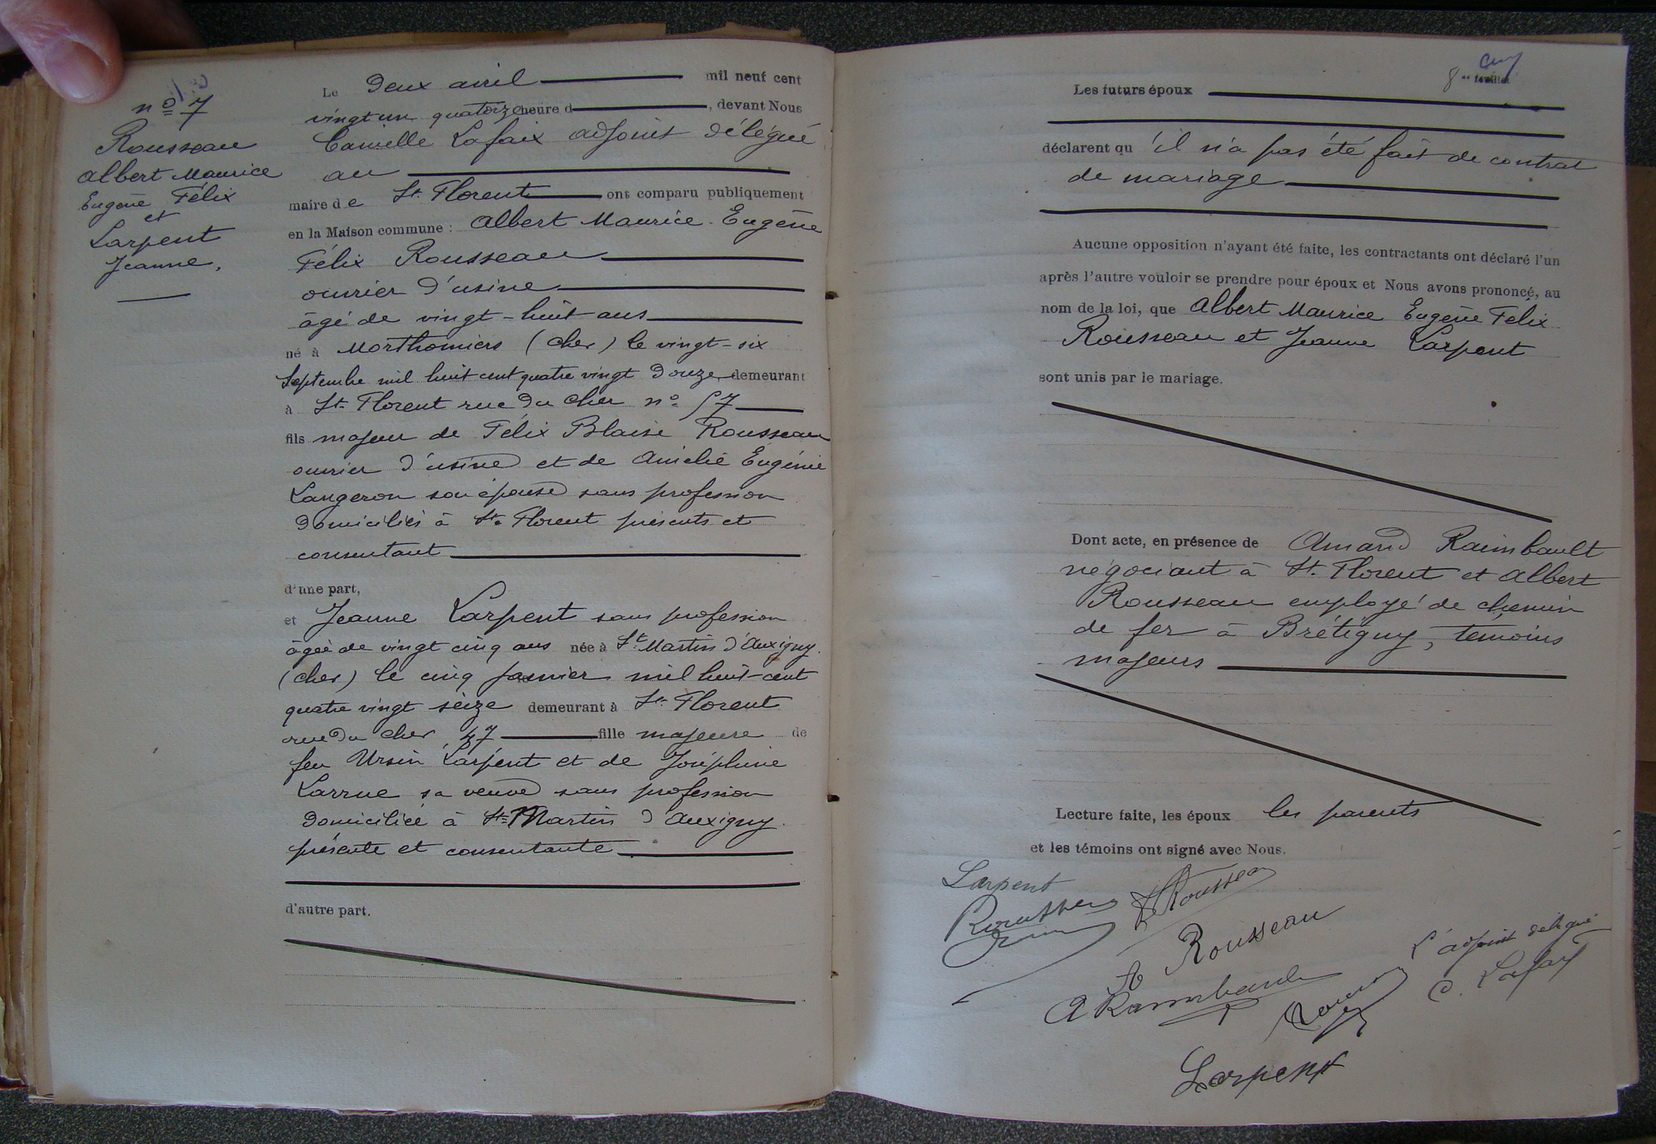 nº 7
Rousseau
Albert Maurice
Eugène Félix
et
Larpent
Jeanne,
Le deux avril mil neuf cent
vingt un quatorze heure d , devant Nous
Camille Lafaix adjoint délégué
au
maire de St. Florent ont comparu publiquement
en la Maison commune : Albert Maurice Eugène
Félix Rousseau
ouvrier d'usine
âgé de vingt-huit ans
né à Morthomiers (Cher) le vingt-six
Septembre mil huit cent quatre vingt douze demeurant
à St. Florent rue du Cher nº 57
fils majeur de Félix Blaise Rousseau
ouvrier d'usine et de Amélie Eugénie
Langeron son épouse sans profession
domiciliés à St. Florent présents et
consentant
d'une part,
et Jeanne Larpent sans profession
âgée de vingt cinq ans née à St. Martin d'Auxigny
(Cher) le cinq janvier mil huit-cent
quatre vingt seize demeurant à St. Florent
rue du Cher 57 fille majeure de
feu Ursin Larpent et de Joséphine
Larrue sa veuve sans profession
domiciliée à St. Martin d'Auxigny
présente et consentante
d'autre part.
8me feuillet
Les futurs époux
déclarent qu'il n'a pas été fait de contrat
de mariage
Aucune opposition n'ayant été faite, les contractants ont déclaré l'un
après l'autre vouloir se prendre pour époux et Nous avons prononcé, au
nom de la loi, que Albert Maurice Eugène Félix
Rousseau et Jeanne Larpent
sont unis par le mariage.
Dont acte, en présence de Amand Raimbault
négociant à St. Florent et Albert
Rousseau employé de chemin
de fer à Brétigny, témoins
majeurs
Lecture faite, les époux les parents
et les témoins ont signé avec Nous.
Larpent
Rousseau
Rousseau
Rousseau
A Raimbault
L'adjoint délégué
C. Lafaix
Larpent